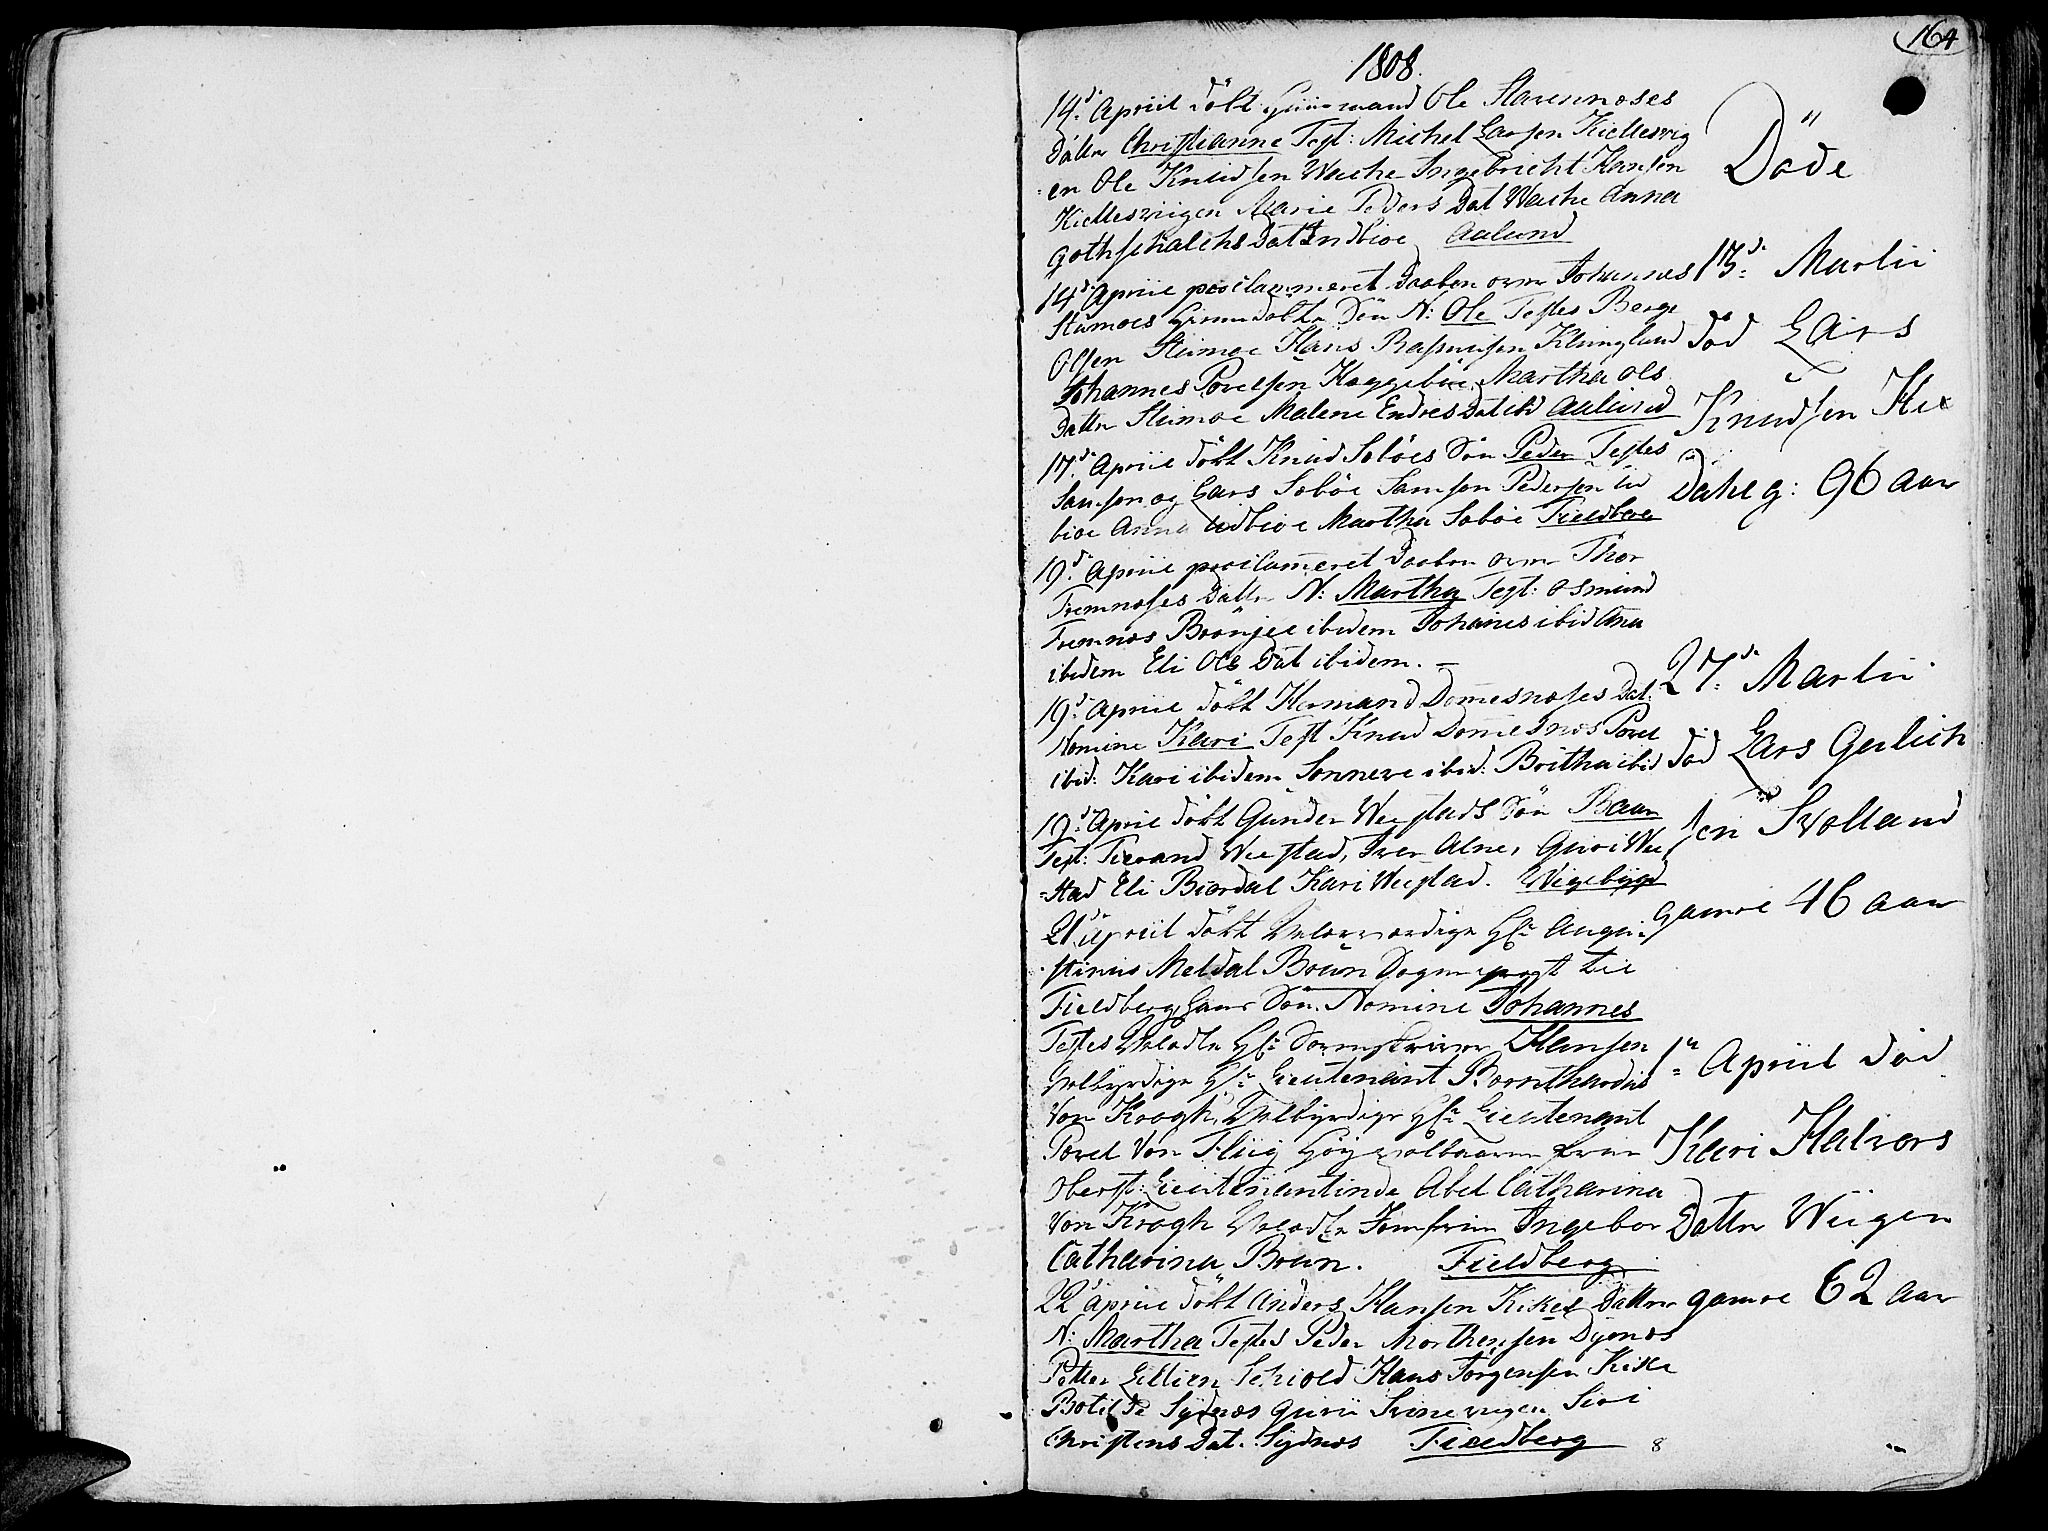 164
1808.
14de Apriil döbt Ole
Datter Christianne Test: Michel Larsen Kiellesvig
en Ole Knudsen Wache Ingebricht Hansen
Kiellesviigen Marie Peders Dat Wache Anna
Gothschalchs Dat Indbioe Aalund
14de Apriil proclameret Daaben over Johannes
Stumoes Hiemdöbte Sön N: Ole Testes Berge
Olsen Stumoe Hans Rasmusen Klunglund
Johannes Povelsen Haggeböe Martha Ols
Datter Stumoe Malene Endres Dat ibid Aalund
17de Apriil döbt Knud Soböes Sön Peder Testes
Samson og Lars Soböe Samson Pedersen Ud
bioe Anna Udbioe Martha Soböe Fieldberg
19de Apriil proclameret Daaben over Thor
Fremnæses Datter N: Martha Test: Osmund
Fremnæs Brönjel ibidem Johanes ibid Ana
ibidem Eli Ols Dat ibidem. —
19de Apriil döbt Hermand Domesnæses Dat:
Nomine Kari Test Knud Domesnæs Povel
ibid: Kari ibidem Sonneve ibid: Britha ibid
19de Apriil döbt Gunder Weestads Sön Baar
Test: Tieran Weestad, Iver Alne, Guri Wee
-stad Eli Biordal Kari Weestad. Wigebygd
21de Apriil döbt Velærværdige Hr: Augu-
-stinus Meldal Bruun Sogneprest til
Fieldberg hans Sön Nomine Johannes
Testes Velædle Hr: Sorenskriver Hansen
Velbyrdige Hr: Lieutenant Bernthardus
Von Krogh, Velbyrdige Hr: Lieutenant
Povel Von Fliig Höyvelbaarne Frue
Oberst: Lieutenantinde Abel Catharina
Von Krogh Velædle Jomfrue Ingebor
Catharina Bruun. Fieldberg
22de Apriil döbt Anders Hansen Kikes Datter
N: Martha Testes Peder Morthensen Dyenæs
Petter Lillien Schiold Hans Jörgensen Kike
Botilde Sydnæs Guri Svinevigen Siri
Christens Dat. Sydnæs Fieldberg
8
Döde
13de Martii
död Lars
Knudsen He
Dahl g: 96 aar
27de Martii
död Lars Gerlich
sen Svolland
gamel 46 aar
1te Apriil död
Kari Halvors
Datter Wiigen
gamel 62 aar